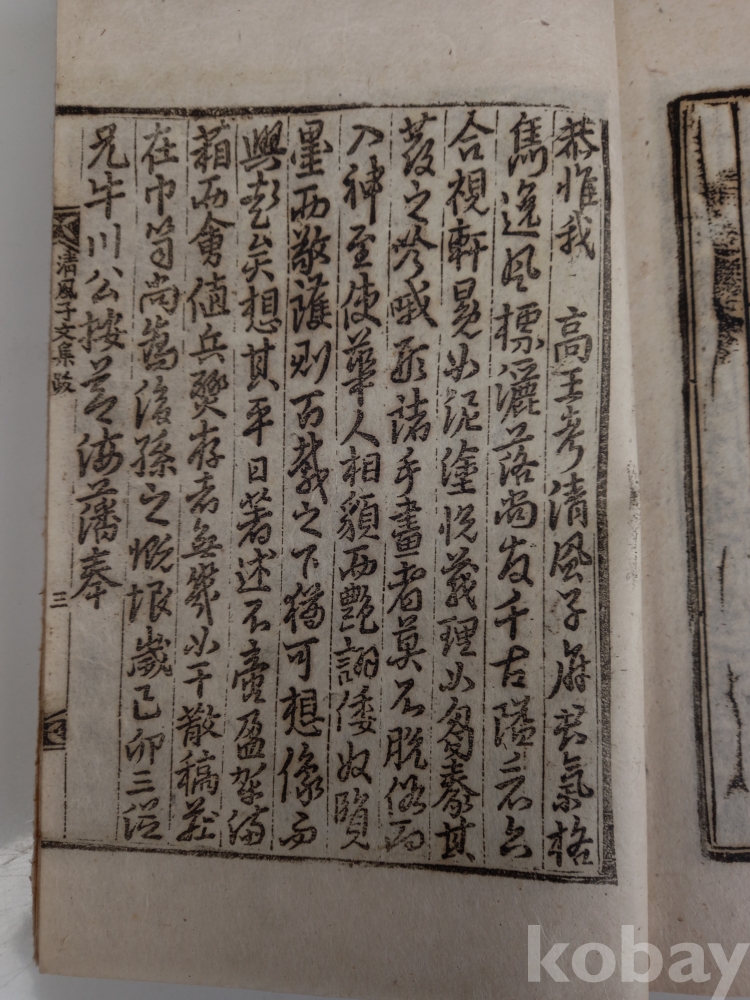 恭惟我 高王考清風子府君氣格
雋逸風標灑落尚友千古隘六
合視軒冕如泥塗悅義理如芻豢其
發之吟哦形諸手畫者莫不脫俗而
入神至使華人相顧而艶詡倭奴覽
墨而敬護則百載之下猶可想像而
興起矣想其平日著述不啻盈架滿
箱而會値兵燹存者無幾如干散稿莊
在巾笥尚舊後孫之慨恨歲己卯三從
兄牛川公按 海藩奉
清風子文集跋
三
kobay